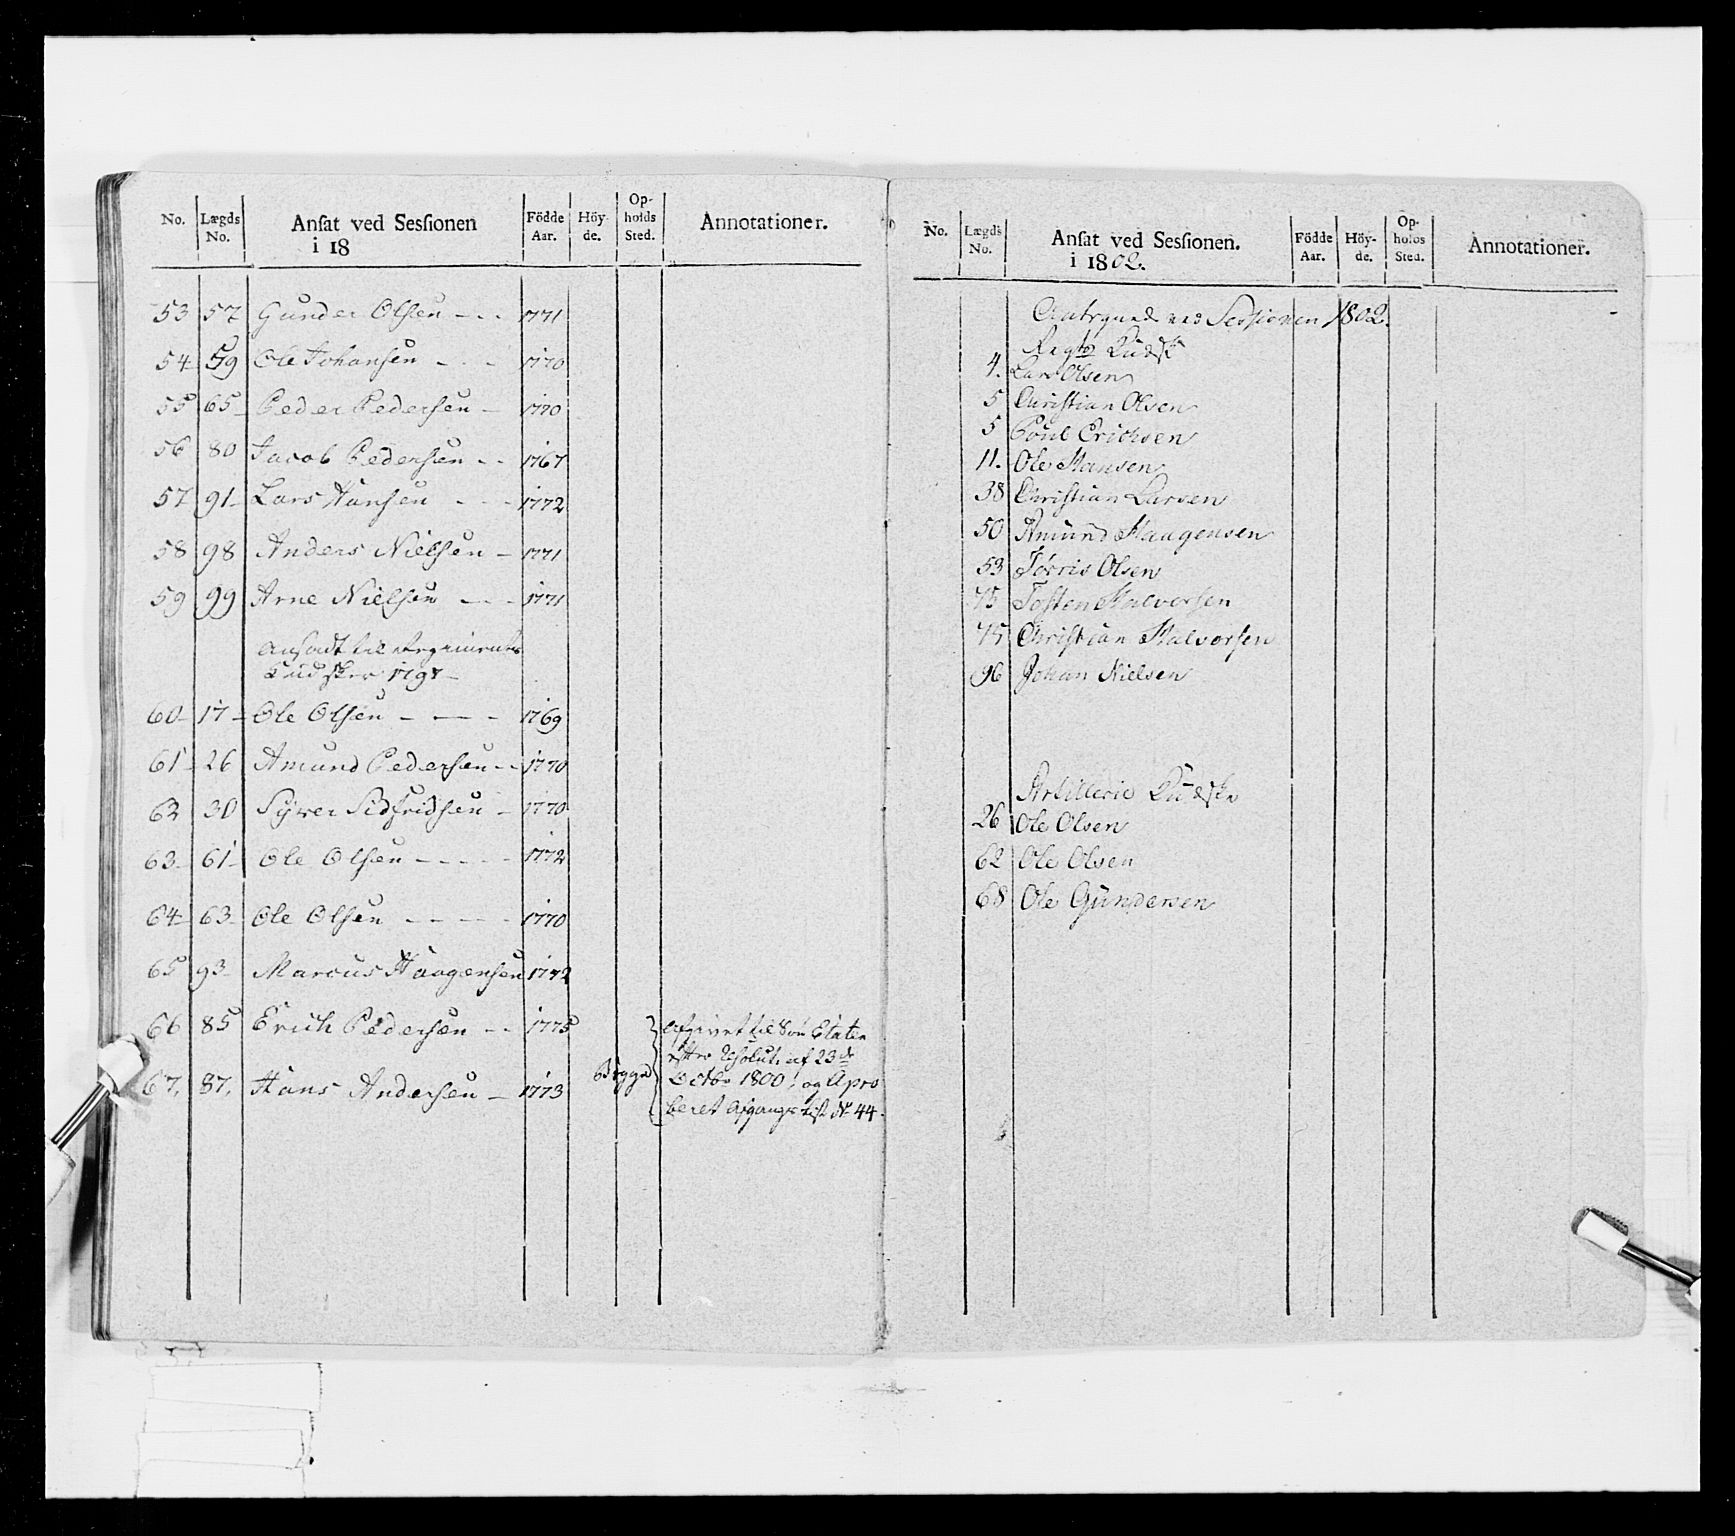 No. Lægds No. Ansat ved Sessionen i 18 Födde Aar. Höyde. Opholds Sted. Annotationer.
53 57 Gunder Olsen - - - 1771
54 59 Ole Johansen - - - 1770
55 65 Peder Pedersen - 1770
56 80 Jacob Pedersen - - 1767
57 91 Lars Hansen - - - 1772
58 98 Anders Nielsen - 1771
59 99 Arne Nielsen - - - 1771
Ansadt til Regiments
Kudsker 1798
60 17 Ole Olsen - - - 1769
61 26 Amund Pedersen - - 1770
62 30 Syver Sidfridsen - 1770
63 61 Ole Olsen - - - - 1772
64 63 Ole Olsen - - - - 1770
65 93 Marcus Haagensen 1772
66 85 Erich Pedersen - - 1775
67. 87. Hans Andersen - 1773
Begge
Afgivet til Söe Etaten
efter Resolut. af 23de
Octbr 1800, og Apro
beret Afgangs List No 44.
No. Lægds No. Ansat ved Sessionen. i 1802. Födde Aar. Höyde. Opholds Sted. Annotationer.
ved Sessionen 1802.
Regts Kudsk
4. Lars Olsen
5 Christian Olsen
5 Poul Erichsen
11. Ole Hansen
38 Christian Larsen
50 Amund Haagensen
53 Torris Olsen
75 Tosten Halvorsen
75 Christian Halvorsen
96 Johan Nielsen
Artillerie Kudske
26 Ole Olsen
62 Ole Olsen
68 Ole Gundersen